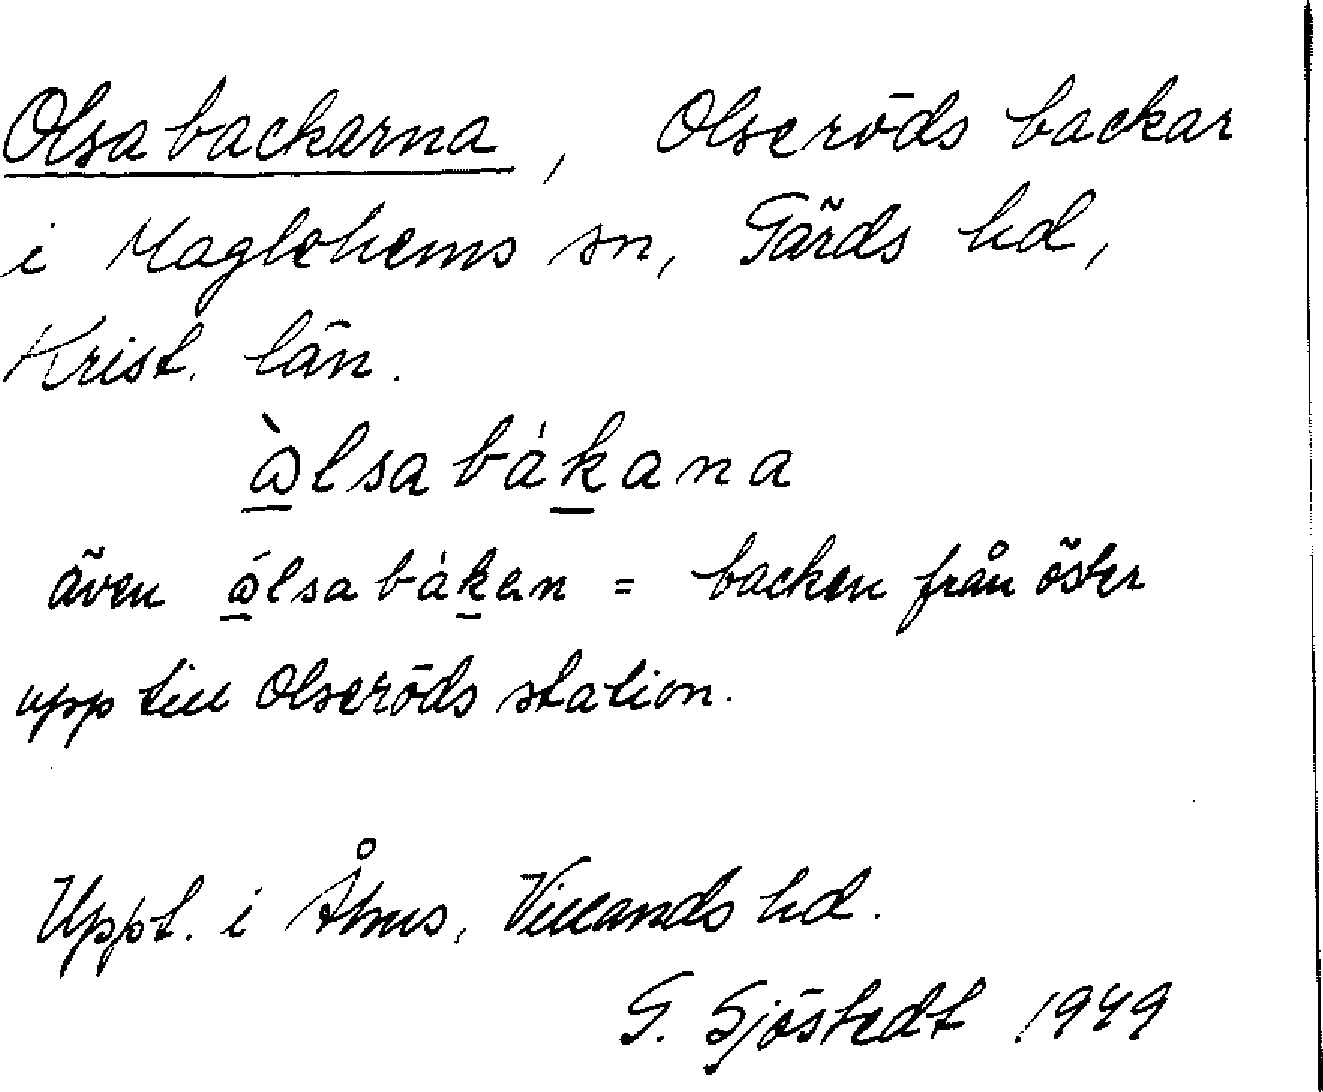 Olsabackarna, Olseröds backar
i Maglehems sn, Gärds hd,
Krist. län.
òlsabákana
även ólsabáken = backen från öster
upp till Olseröds station.
Uppt. i Åhus, Villands hd.
G. Sjöstedt 1949